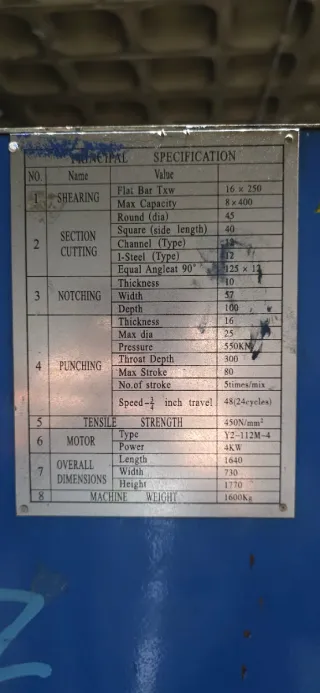 PRINCIPAL SPECIFICATION
NO. Name Value
1 SHEARING Flat Bar Txw 16 × 250
Max Capacity 8×400
2 SECTION CUTTING Round (dia) 45
Square (side length) 40
Channel (Type) 12
I-Steel (Type) 12
Equal Angleat 90° 125 × 12
3 NOTCHING Thickness 10
Width 57
Depth 100
4 PUNCHING Thickness 16
Max dia 25
Pressure 550KN
Throat Depth 300
Max Stroke 80
No.of stroke 5times/mix
Speed-3/4 inch travel 48(24cycles)
5 TENSILE STRENGTH 450N/mm²
6 MOTOR Type Y2-112M-4
Power 4KW
7 OVERALL DIMENSIONS Length 1640
Width 730
Height 1770
8 MACHINE WEIGHT 1600Kg